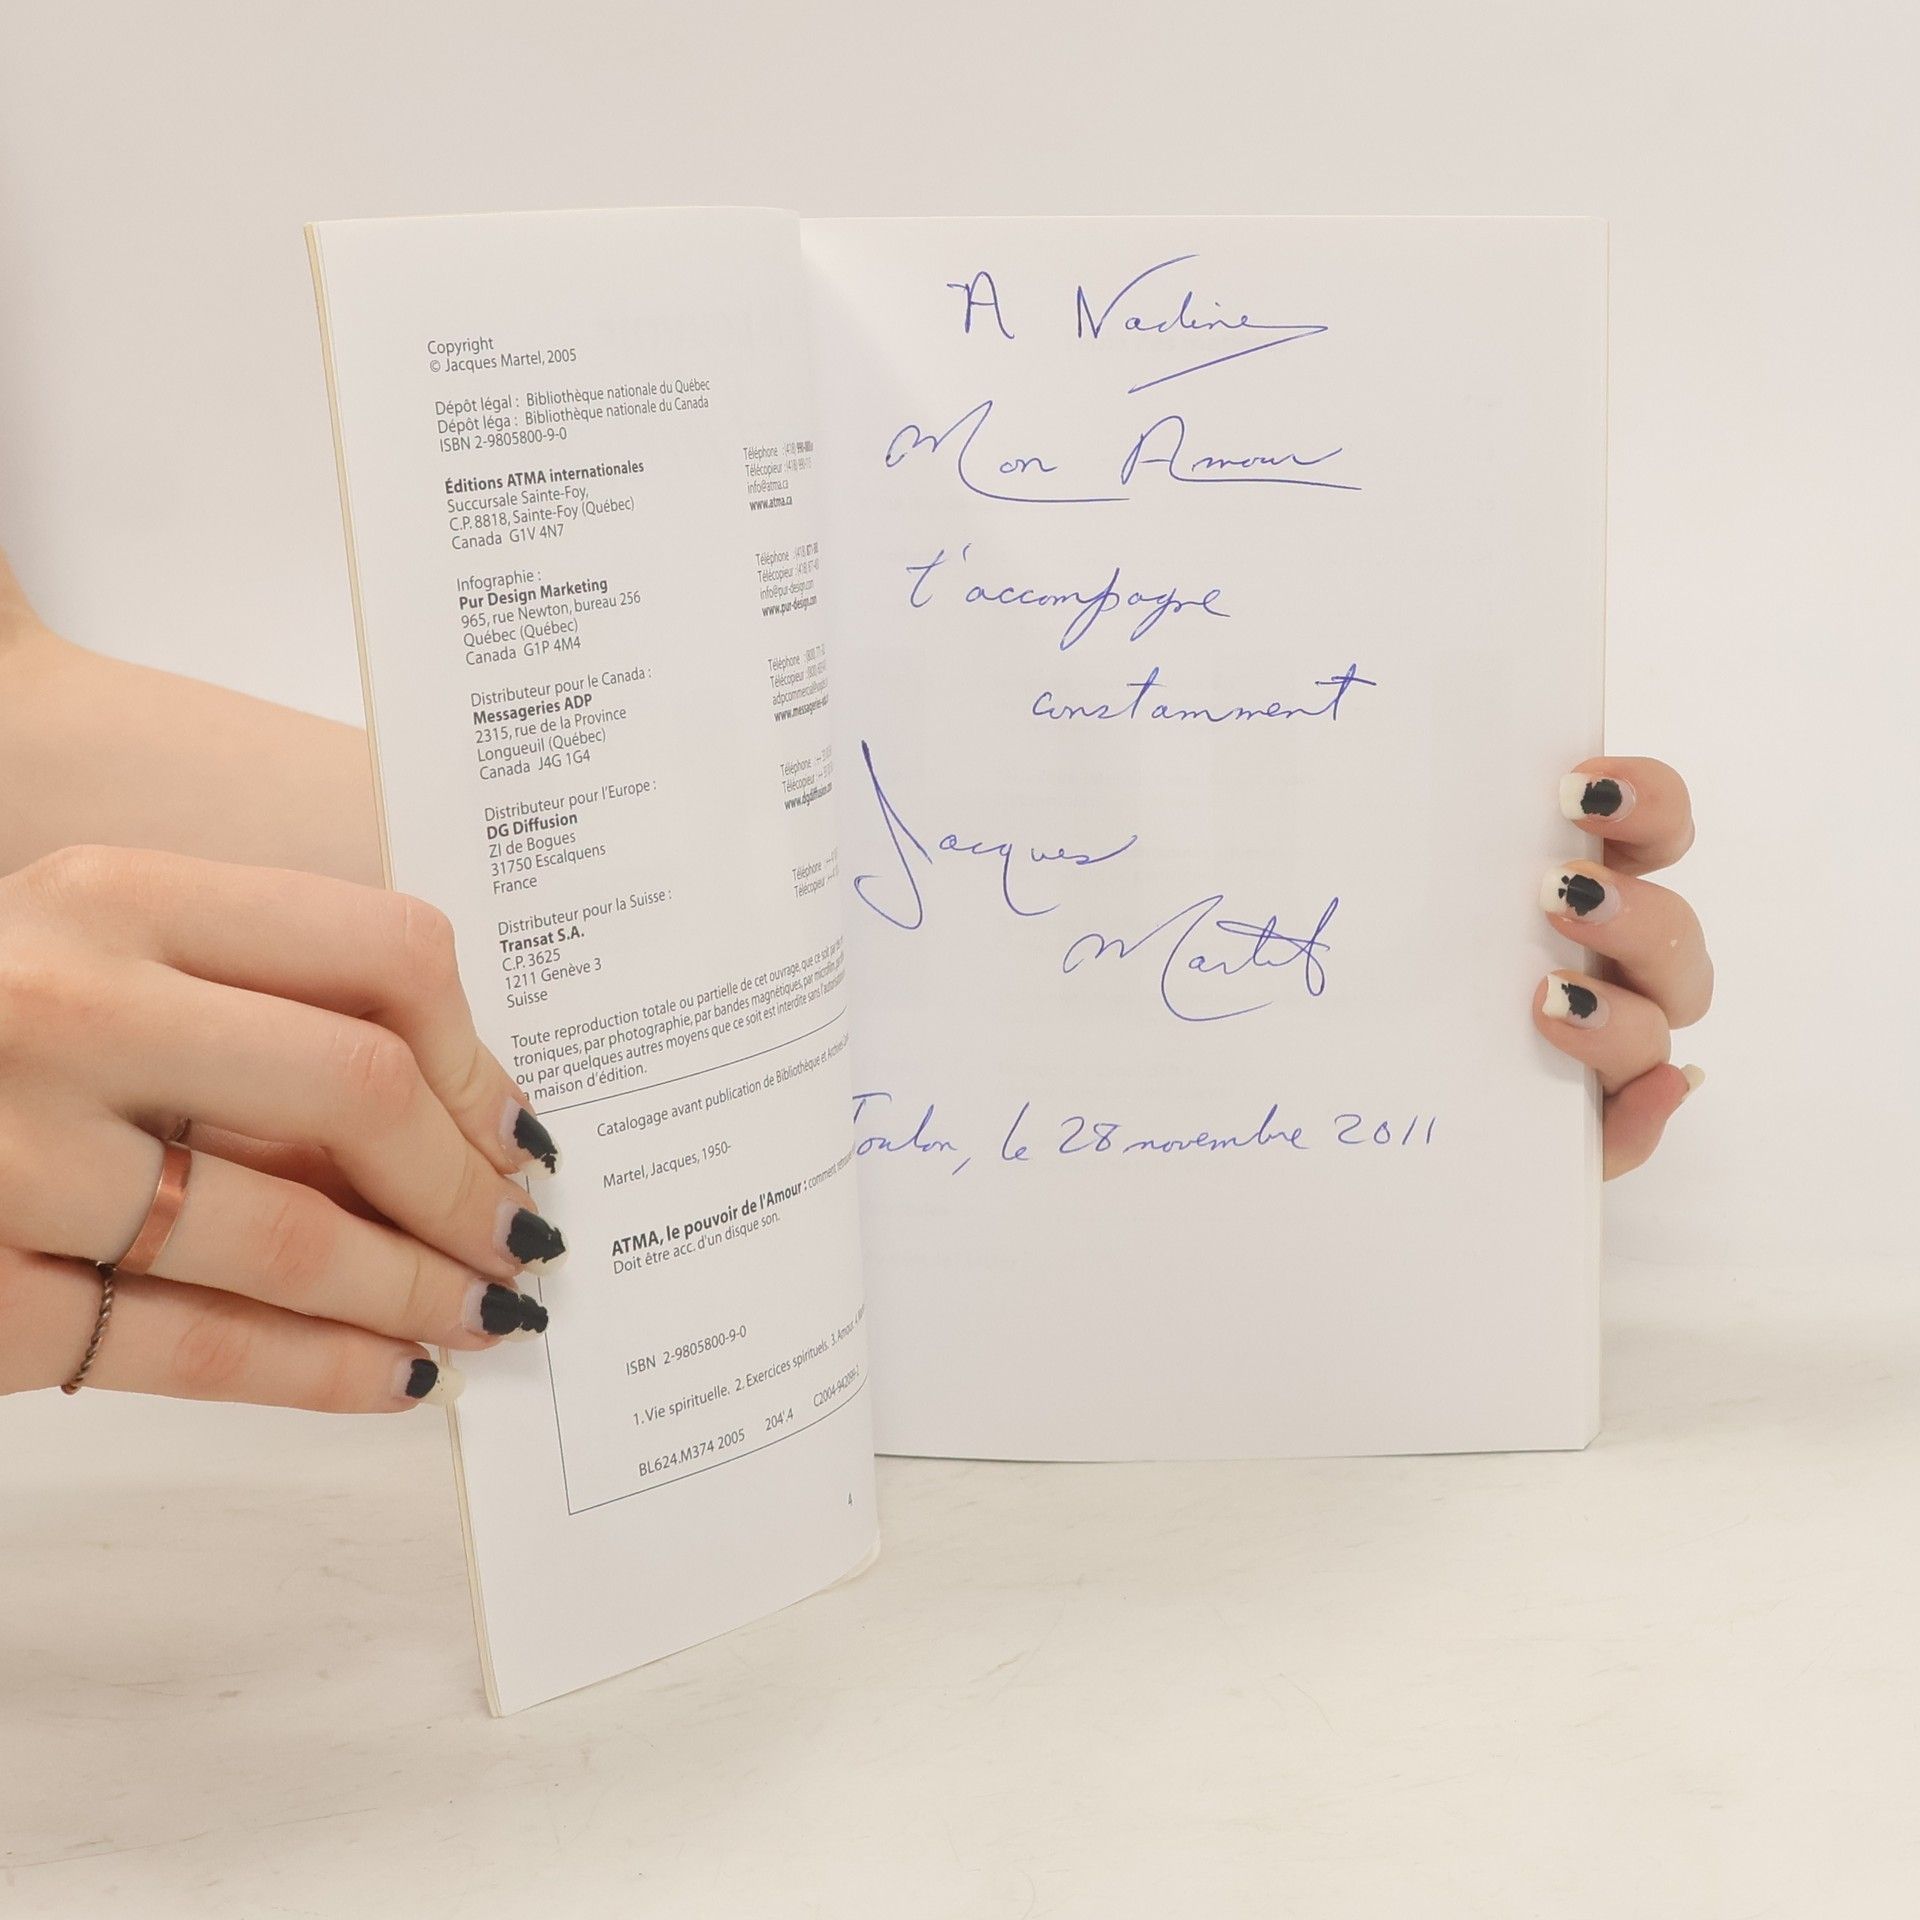 Copyright
© Jacques Martel, 2005
Dépôt légal : Bibliothèque nationale du Québec
Dépôt léga : Bibliothèque nationale du Canada
ISBN 2-9805800-9-0
Éditions ATMA internationales
Succursale Sainte-Foy,
C.P. 8818, Sainte-Foy (Québec)
Canada G1V 4N7
Téléphone : (418)
Télécopieur : (418)
info@atma.ca
www.atma.ca
Infographie :
Pur Design Marketing
965, rue Newton, bureau 256
Québec (Québec)
Canada G1P 4M4
Téléphone : (418)
Télécopieur : (418)
info@pur-design.com
www.pur-design.com
Distributeur pour le Canada :
Messageries ADP
2315, rue de la Province
Longueuil (Québec)
Canada J4G 1G4
Téléphone : (800)
Télécopieur : (800)
Distributeur pour l'Europe :
DG Diffusion
ZI de Bogues
31750 Escalquens
France
Téléphone :
Télécopieur :
www.dgdiffusion.com
Distributeur pour la Suisse :
Transat S.A.
C.P. 3625
1211 Genève 3
Suisse
Téléphone :
Télécopieur :
Toute reproduction totale ou partielle de cet ouvrage, que ce soit par
troniques, par photographie, par bandes magnétiques, par microfilm,
ou par quelques autres moyens que ce soit est interdite sans
maison d'édition.
Catalogage avant publication de Bibliothèque et Archives
Martel, Jacques, 1950-
ATMA, le pouvoir de l'Amour : comment
Doit être acc. d'un disque son.
ISBN 2-9805800-9-0
1. Vie spirituelle. 2. Exercices spirituels. 3. Amour. 4.
BL624.M374 2005 204'.4
4
A Nadine
Mon Amour
t'accompagne
constamment
Jacques
Martel
Toulon, le 28 novembre 2011